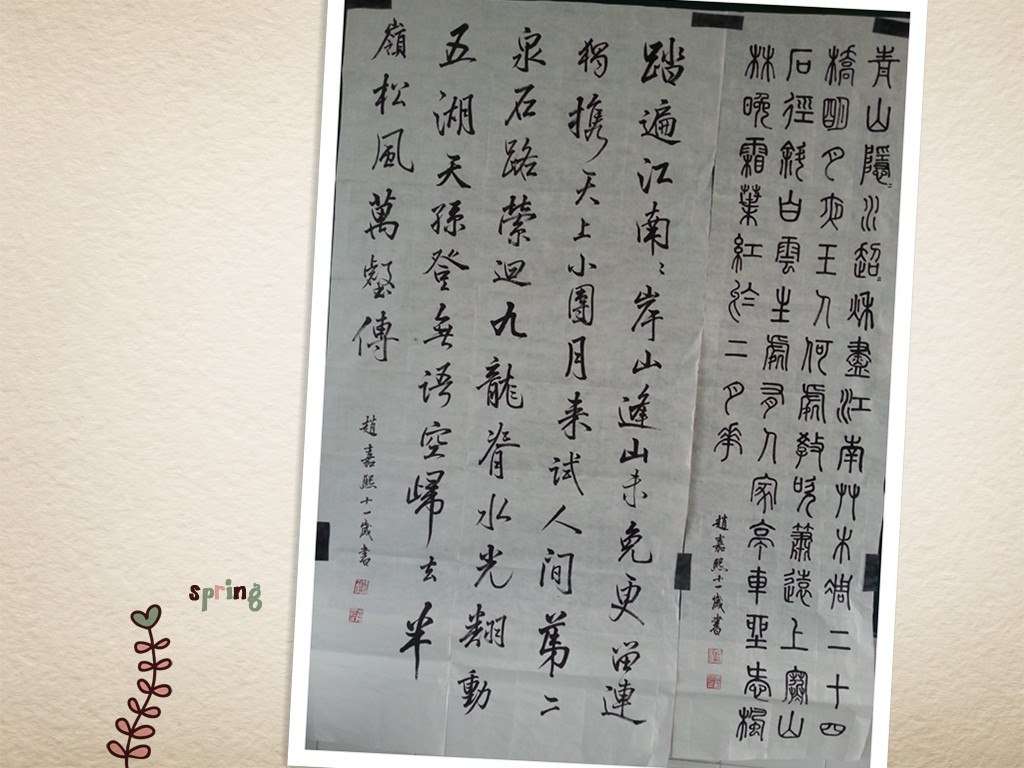 青山隱〻水迢〻秌盡江南艸木凋二十四
橋明月夜玉人何處教吹簫遠上寒山
石徑斜白雲生處有人家亭車坐愛楓
林晚霜葉紅於二月花
趙嘉熙十一歲書
踏遍江南〻岸山逢山未免更留連
獨攜天上小團月来试人间第二
泉石路縈迴九龍脊水光翻動
五湖天孫登無语空歸去半
嶺松風萬壑傳
趙嘉熙十一歲書
spring